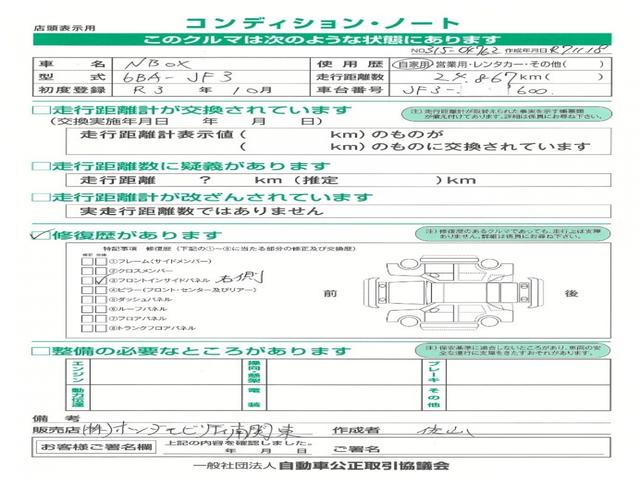 店頭表示用
コンディション・ノート
このクルマは次のような状態にあります
NO.315-04962 作成年月日 R7.11.18
車名 NBOX 使用歴 自家用・営業用・レンタカー・その他( )
型式 6BA-JF3 走行距離数 24,867km( )
初度登録 R3年10月 車台番号 JF3- 600
□走行距離計が交換されています
(交換実施年月日 年 月 日)
注)走行距離計が取替えられた事実を示す帳票類が備え付けてあります。詳細は係員にお尋ね下さい。
走行距離計表示値( km)のものが
( km)のものに交換されています
□走行距離数に疑義があります
走行距離 ? km(推定 )km
□走行距離計が改ざんされています
実走行距離数ではありません
□修復歴があります
注)修復歴のあるクルマであっても、走行上は支障ありません。詳細は係員にお尋ね下さい。
特記事項 修復歴(下記の①~⑨に当たる部分の修正及び交換歴)
修正 交換
①フレーム(サイドメンバー)
②クロスメンバー
③フロントインサイドパネル 右側
④ピラー(フロント・センター及びリアー)
⑤ダッシュパネル
⑥ルーフパネル
⑦フロアパネル
⑧トランクフロアパネル
前 後
□整備の必要なところがあります
注)保安基準に適合しないところがあり、車両の安全な運行に支障をきたすおそれがあります。
エンジン 操向・懸架 ブレーキ
動力伝達 電装 その他
備考
販売店 (株)ホンダモビリティ南関東 作成者
お客様ご署名欄 上記の内容を確認しました。
年 月 日 ご署名
一般社団法人 自動車公正取引協議会